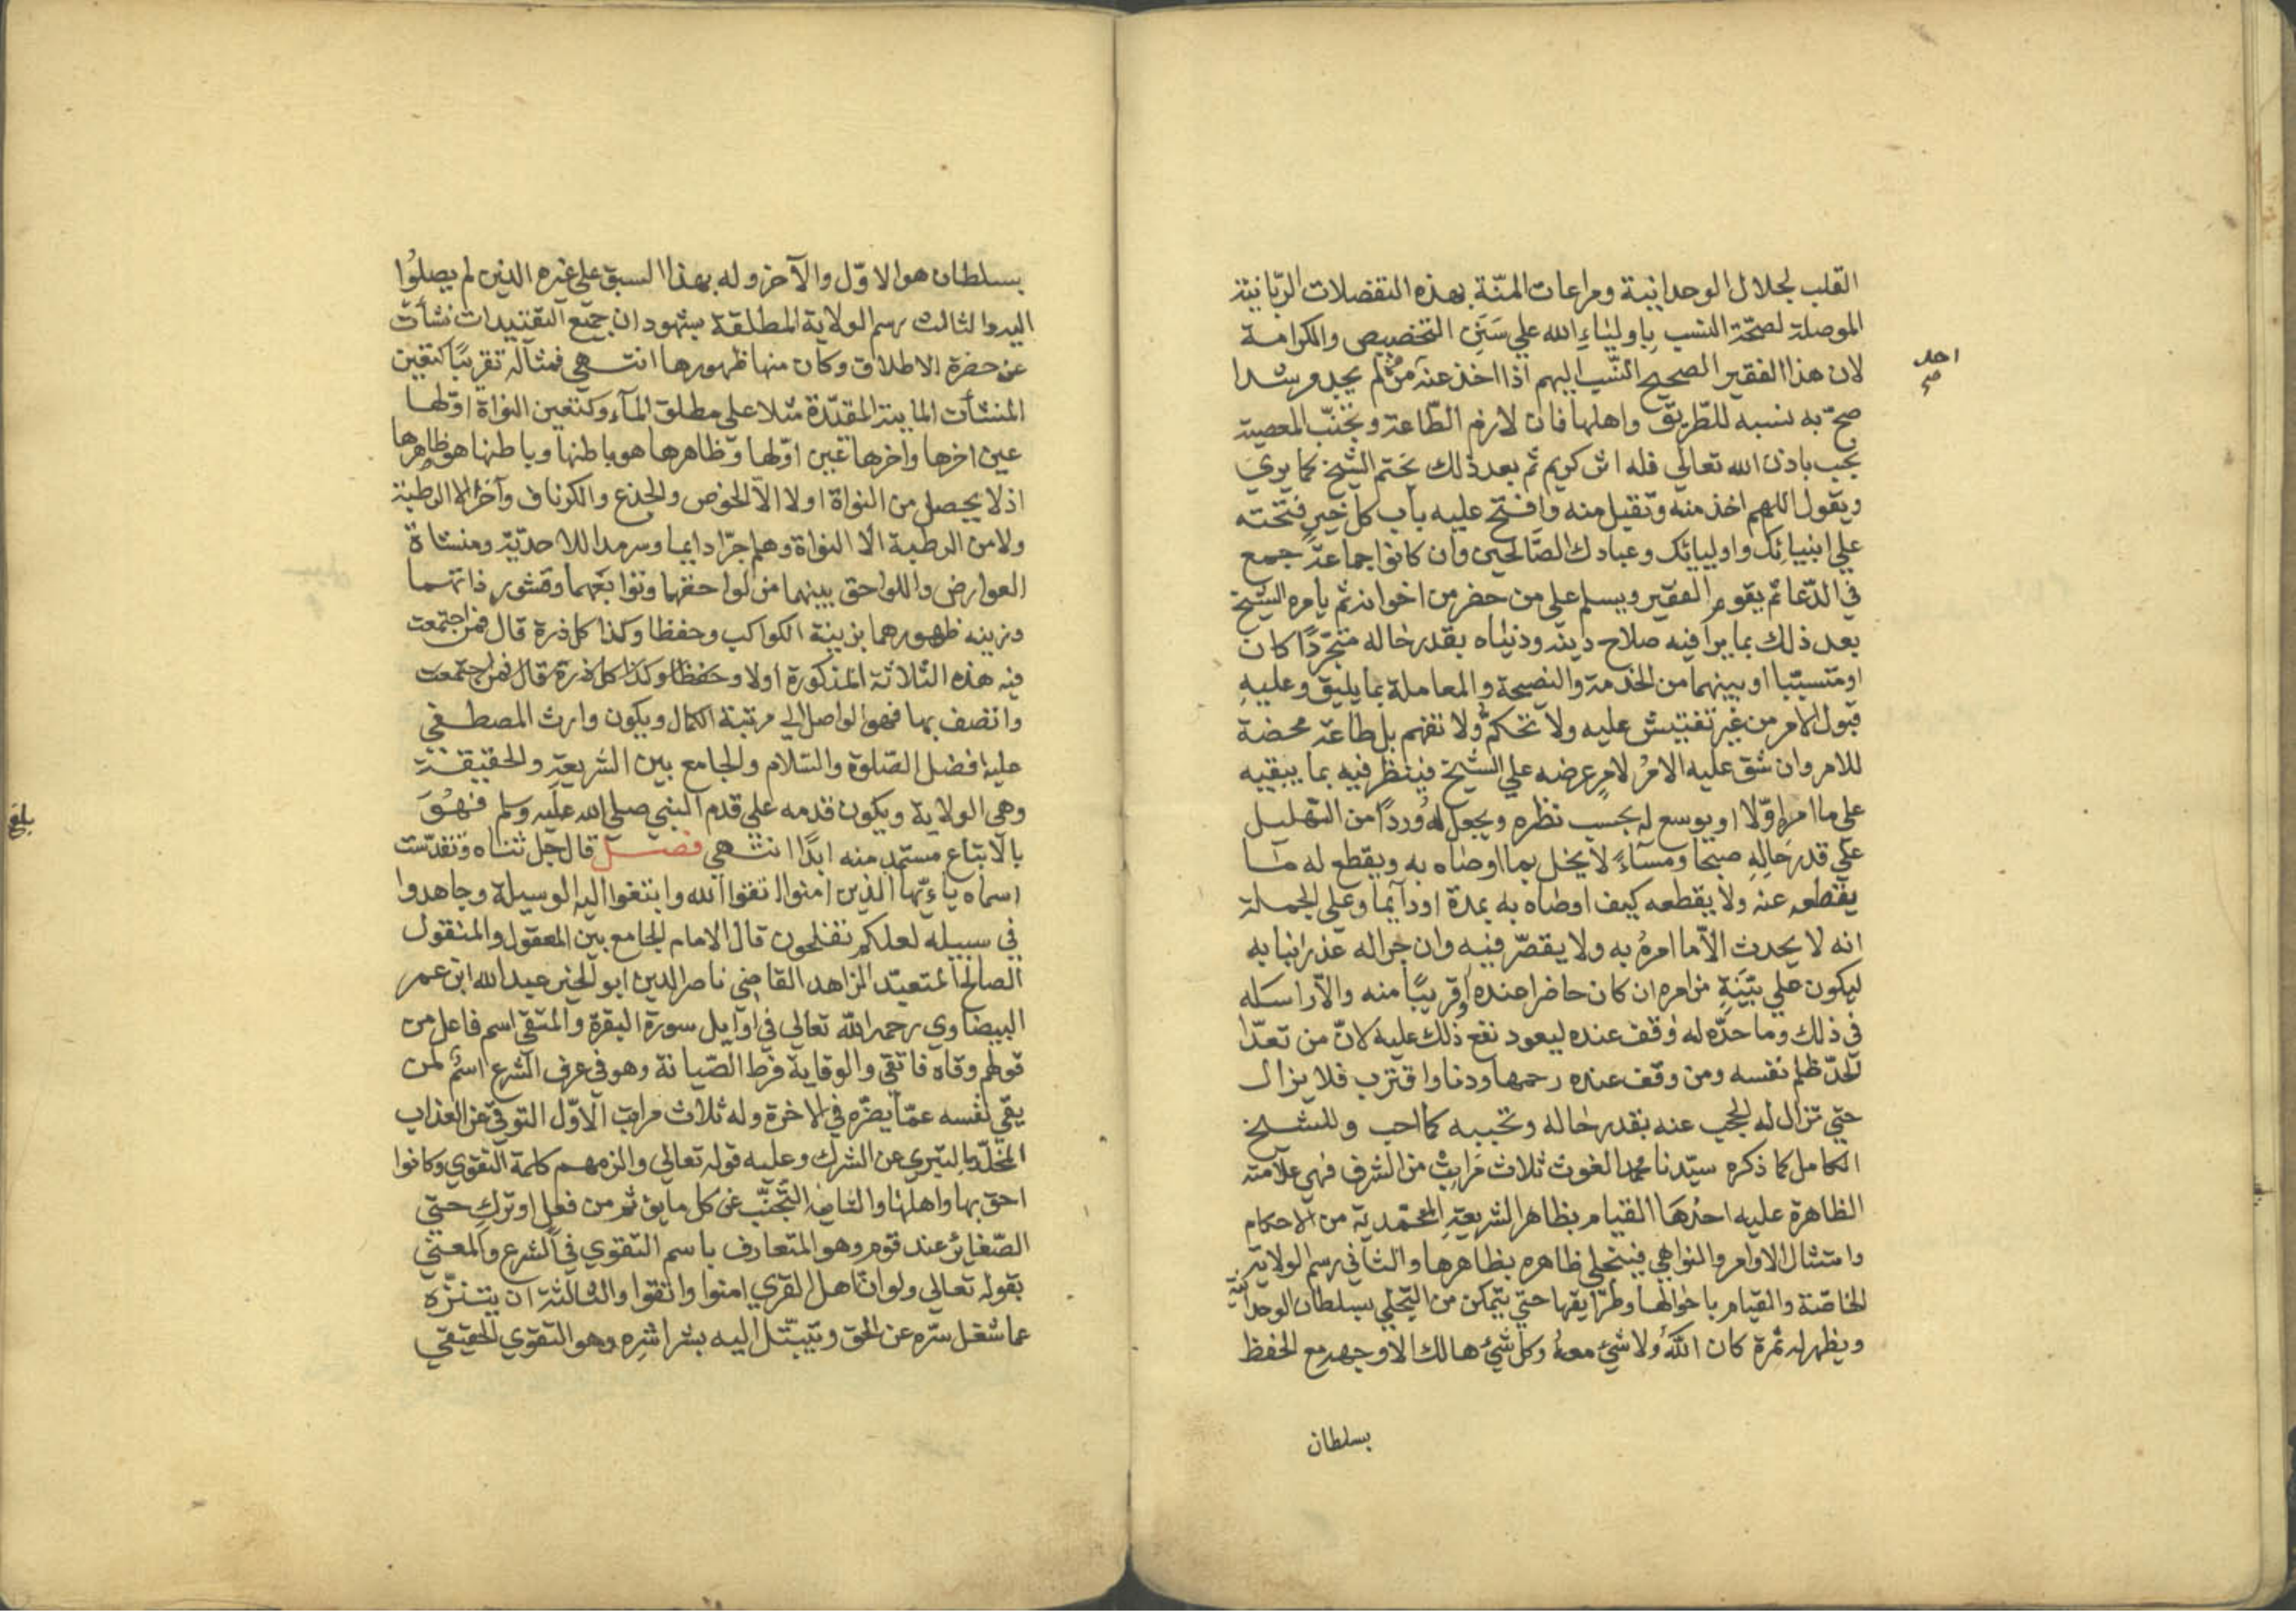 القلب لجلال الوحدانية ومراعات المنّة بهذه التفضلات الربّانية
الموصلة لصحّة النسب باولياء الله علي سَنَنِ التخصيص والكرامة
لان هذا الفقير الصحيح النّسب اليهم اذا اخذ عنه من لم يجد مرشدا
احد
صح
صحّ به نسبه للطّريق واهلها فان لازم الطّاعة وتجنّب المعصية
بجب باذن الله تعالي فله اثر كريم ثم بعد ذلك يختم الشيخ بما يري
ويقول اللهم اخذ منه وتقبل منه وافتح عليه باب كل خيرٍ فتحته
علي انبيائك واوليائك وعبادك الصّالحين وان كانوا جماعةً جمع
في الدّعا ثم يقوم الفقير ويسلم علي من حضر من اخوانه ثم يامره الشيخ
بعد ذلك بما يرا فيه صلاح دينه ودنياه بقدر حاله متجرّدًا كان
او متسبّبا او بينهما من الخدمة والنصيحة والمعاملة بما يليق وعليهِ
قبول الامر من غير تفتيش عليه ولا تحكمٍ ولا تفهم بل طاعة محضة
للامر وان شق عليه الامرُ لامرٍ عرضه علي الشيخ فينظر فيه بما يبقيه
علي ما امر اوّلا او يوسع له بحسب نظره ويجعل له وردًا من التهليل
علي قدر حالِهِ صبحا ومساءً لا يخل بما اوصاه به ويقطع له ما
يقطعه عنه ولا يقطعه كيف اوصاه به بمدة او دآيما وعلي الجملة
انه لا يحدث الاّ ما امرهُ به ولا يقصّر فيه وان جرا له عذر انبا به
ليكون علي بيّنةٍ من امره ان كان حاضرا عنده او قريبًا منه والاّ راسله
في ذلك وما حدّه له وقف عنده ليعود نفع ذلك عليه لانّ من تعدّا
الحدّ ظلم نفسه ومن وقف عنده رحمها ودنا واقترب فلا يزال
حتي تزال له الحجب عنه بقدر حاله وتحببه كما احب وللشيخ
الكامل كما ذكره سيّدنا محمد الغوث ثلاث مراتب من الشرف فهي علامته
الظاهرة عليه احدُها القيام بظاهر الشريعةِ المحمّدية من الاحكام
وامتثال الاوامر والنواهي فيتحلي ظاهره بظاهرها والثاني رسم الولاية
الخاصّة والقيام باحوالها وطرايقها حتي يتمكن من التجلي بسلطان الوحدانية
ويظهر له ثمرة كان اللهُ ولا شيءَ معهُ وكل شيء هالك الا وجهه مع الحفظ
بسلطان
بسلطان هو الاوّل والآخر وله بهذا السبق علي غيره الذين لم يصلُوا
اليه والثالث رسم الولاية المطلقة بشهود ان جميع التقنييدات نشأت
عن حضرة الاطلاق وكان منها ظهورها انتهي فمثاله تقريبًا كتعين
المنشآت المايية المقيّدة مثلا علي مطلق المآء وكتعين النواة اوّلها
عين اخرها واخرها عين اوّلها وظاهرها هو باطنها وباطنها هو ظاهرها
اذ لا يحصل من النواة اولا الاّ الخوص والجذع والكرناف وآخرا الا الرطبة
ولا من الرطبة الا النواة وهلم جرّا دايما وسرمدا للاحديّة ومنشاة
العوارض واللواحق بينهما من لواحقها وتوابعهما وقشور ذاتهما
وزينه ظهورهما بزينة الكواكب وحفظا وكذا كل ذرة قال فمن اجتمعت
فيه هذه الثلاثة المذكورة اولا وحفظا وكذا كل ذرة قال فمن اجتمعت
واتصف بها فهو الواصل الي مرتبة الكمال ويكون وارث المصطفي
عليه افضل الصّلوة والسّلام والجامع بين الشريعة والحقيقة
وهي الولاية ويكون قدمه علي قدم النبي صلي الله عليه وسلم فهُوَ
بلغ
بالاتباع مستمد منه ابدًا انتهي فصل قال جل ثناه وتقدّست
اسماه يا ءيّها الذين امنوا اتقوا الله وابتغوا اليه الوسيلة وجاهدوا
في سبيله لعلكم تفلحون قال الامام الجامع بين المعقول والمنقول
الصالح المتعبّد الزاهد القاضي ناصر الدين ابو الخير عبد الله ابن عمر
البيضاوي رحمه الله تعالي في اوآيل سورة البقرة والمتقي اسم فاعل من
قولهم وقاه فاتقي والوقاية فرط الصّيانة وهو في عرف الشرع اسمٌ لمن
يقي نفسه عمّا يضرّه في الاخرة وله ثلاث مراتب الاوّل التوقي عن العذاب
المخلّد بالتبري عن الشرك وعليه قوله تعالي والزمهم كلمة التقوي وكانوا
احق بها واهلها والثانية التجنّب عن كل ما يؤثم من فعلٍ او تركٍ حتي
الصّغاير عند قوم وهو المتعارف باسم التقوي في الشرع والمعني
بقوله تعالي ولو انّ اهل القري امنوا واتقوا والثالثة ان يتنزّه
عما شغل سرّه عن الحق ويتبتّل اليه بشراشره وهو التقوي الحقيقي